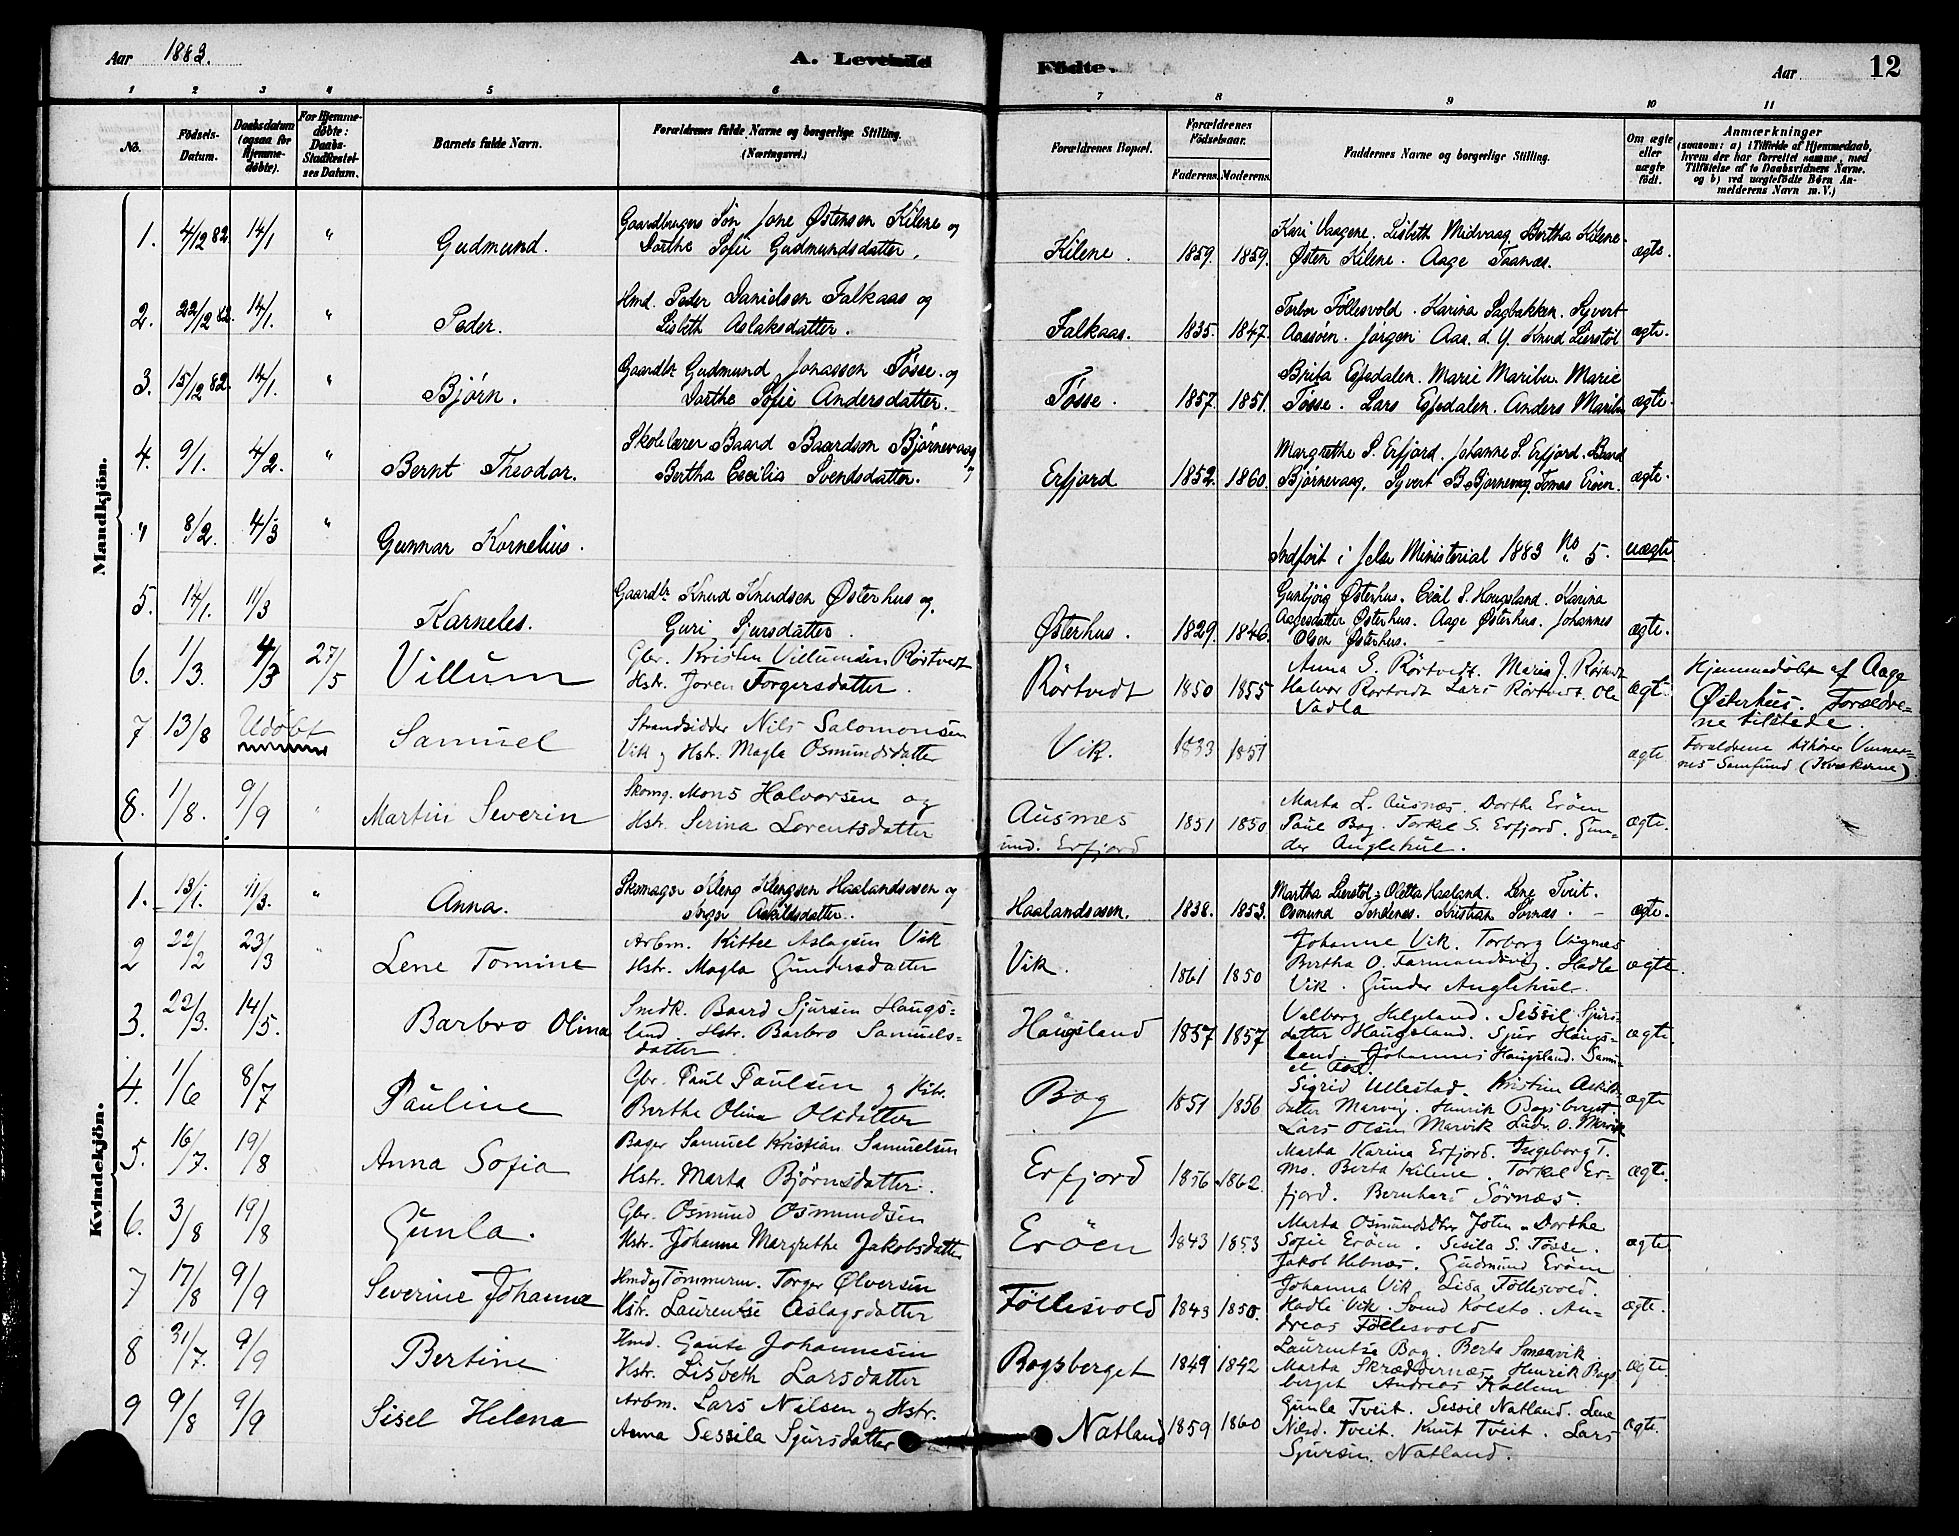 Aar 1883. A. Levende Fødte. Aar 12
1 2 3 4 5 6 7 8 9 10 11
No. Fødsels-Datum. Daabsdatum (ogsaa for Hjemme-døbte). For Hjemme-døbte: Daabs-Stadfæstel-ses Datum. Barnets fulde Navn. Forældrenes fulde Navne og borgerlige Stilling. (Næringsvei.) Forældrenes Bopæl. Forældrenes Fødselsaar. Faderens. Moderens. Faddernes Navne og borgerlige Stilling. Om ægte eller uægte født. Anmærkninger (saasom: a) i Tilfælde af Hjemmedaab, hvem der har forrettet samme, med Tilføielse af to Daabsvidners Navne, og b) ved uægtefødte Børn An-melderens Navn m. V.)
Mandkjön.
1. 4/12 82. 14/1 " Gudmund. Gaardbrugers Søn Jone Østensen Kilene og
Dorthe Sofie Gudmundsdatter. Kilene. 1859. 1859. Kari Vaagene. Lisbeth Midvaag. Bertha Kilene.
Østen Kilene. Aage Taanæs. ægte.
2. 22/12 82. 14/1. " Peder. Hmd. Peder Danielsen Falkaas og
Lisbeth Aslaksdatter. Falkaas. 1835. 1847. Torbor Föllesvold. Karina Sagbakken. Syvert
Aasøen. Jørgen Aas. d. Y. Knud Lierstøl ægte.
3. 15/12 82. 14/1. " Bjørn. Gaardbr. Gudmund Jonassen Tøsse og
Dorthe Sofie Andersdatter. Tøsse. 1857. 1851. Brita Egfedalen. Marie Maribu. Marie
Tøsse. Lars Egfedalen. Anders Maribu ægte.
4. 9/1. 4/2. " Bernt Theodor. Skolelærer Baard Baardsen Bjørnevaag
Bertha Cecilia Svendsdatter. Erfjord 1852. 1860. Margrethe S. Erfjord. Johanne S. Erfjord. Baard
Bjørnevaag. Syvert B. Bjørnevaag. Tomas Erøen. ægte.
" 8/2. 4/3 " Gunnar Kornelius. Indført i Jelse Ministerial 1883 No 5. uægte
5. 14/1. 11/3 Karneles. Gaardbr. Knud Knudsen Østerhus og
Guri Sjursdatter. Østerhus. 1829. 1846. Gunbjørg Østerhus. Cecil S. Hougsland. Karina
Aagesdatter Østerhus. Aage Østerhus. Johannes
Olsen Østerhus. ægte.
6. 1/3. 4/3 27/5 Villum Gbr. Kristen Villumsen Rörtvedt
Hstr. Joren Torgersdatter. Rörtvedt 1850 1855 Anna S. Rörtvedt. Maria J. Rörtvedt
Halvor Rörtvedt Lars Rörtvedt. Ole
Vadla ægte. Hjemmedøbt af Aage
Østerhus. Forældre-
ne tilstede.
7 13/8 Udøbt Samuel Strandsidder Nils Salomonsen
Vik og Hstr. Magla Osmundsdatter Vik. 1833 1851 ægte Forældrene tilhører Venner-
nes Samfund (Kvækerne)
8. 1/8. 9/9 " Martin Severin Skomg. Mons Halvorsen og
Hstr. Serina Lorentsdatter Ausnes
und. Erfjord 1851 1850 Marta L. Ausnæs. Dorthe Eröen
Paul Bog. Torkel S. Erfjord. Gun-
der Anglehul. ægte.
Kvindekjön.
1. 13/1. 11/3. " Anna. Skomager Kleng Klengsen Haalandsosen og
Inger Askildsdatter. Haalandsosen. 1838. 1853. Martha Lierstøl. Oletta Haaland. Lene Tveit.
Osmund Sendenes. Kristian Sørnæs. ægte.
2 22/2 23/3 " Lene Tomine Arbm. Kittel Aslagsen Vik
Hstr. Magla Gundersdatter Vik. 1861 1850 Johanne Vik. Torborg Vignes
Bertha O. . Hadle
Vik. Gunder Anglehul. ægte.
3. 22/3. 14/5. Barbro Olina Smdk. Baard Sjursen Haugs-
land Hstr. Barbro Samuels-
datter Haugsland 1857 1857 Valborg Helgeland. Sessil Sjurs-
datter Haugsland. Sjur Haugs-
land. Johannes Haugsland. Samu-
el ægte.
4. 1/6 8/7 Pauline Gbr. Paul Paulsen og Hstr.
Berthe Olina Olsdatter Bog 1851 1856 Sigrid Ullestad. Kristine Askilds-
datter Marvig. Henrik Bogsberget
Lars Olsen Marvik O. Marvik ægte
5. 16/7. 19/8 Anna Sofia Bager Samuel Kristian Samuelsen
Hstr. Marta Bjørnsdatter. Erfjord 1856 1862. Marta Karina Erfjord. Ingeborg T.
Mo. Berta Kilene. Torkel Er-
fjord. Bernhard Sörnæs. ægte.
6. 3/8 19/8 Gunla. Gbr. Osmund Osmundsen
Hstr. Johanne Margrethe Jakobsdatter Eröen 1843 1853 Marta Osmundsdtr Joten. Dorthe
Sofie Eröen. Sesila S. Tösse.
Jakob Hebnes. Gudmund Eröen ægte.
7 17/8 9/9 Severine Johanne Hmd og Tömmerm. Torger Ölversen
Hstr. Laurentse Aslagsdatter Föllesvold 1843 1850. Johanna Vik Lisa Föllesvold.
Hadle Vik. Svend Kolstø. An-
dreas Föllesvold ægte.
8 31/7. 9/9 Bertine Hmd. Gaute Johannesen
Hstr. Lisbeth Larsdatter Bogsberget 1849 1842 Laurentse Bog. Berta Smaavik
Marta Skræddernæs Henrik Bogs
berget Andreas Kallem ægte
9 9/8 9/9 Sisel Helena Arbm. Lars Nilsen og Hstr.
Anna Sessila Sjursdatter Natland 1859 1860 Gunla Tveit. Sessil Natland. Lene
Nilsd. Tveit. Knut Tveit. Lars
Sjursen Natland. ægte.